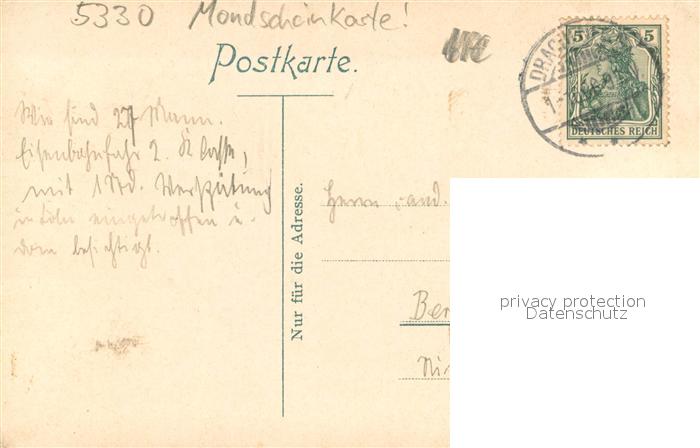 5330 Mondscheinkarte!
Postkarte.
5 5
DEUTSCHES REICH
DRAC
Wir sind 27 Mann.
Eisenbahnfahrt 2. Klasse,
mit 1 Std. Verspätung
in Köln eingetroffen u.
Dom besichtigt.
Nur für die Adresse.
Herrn cand.
Ber
privacy protection
Datenschutz